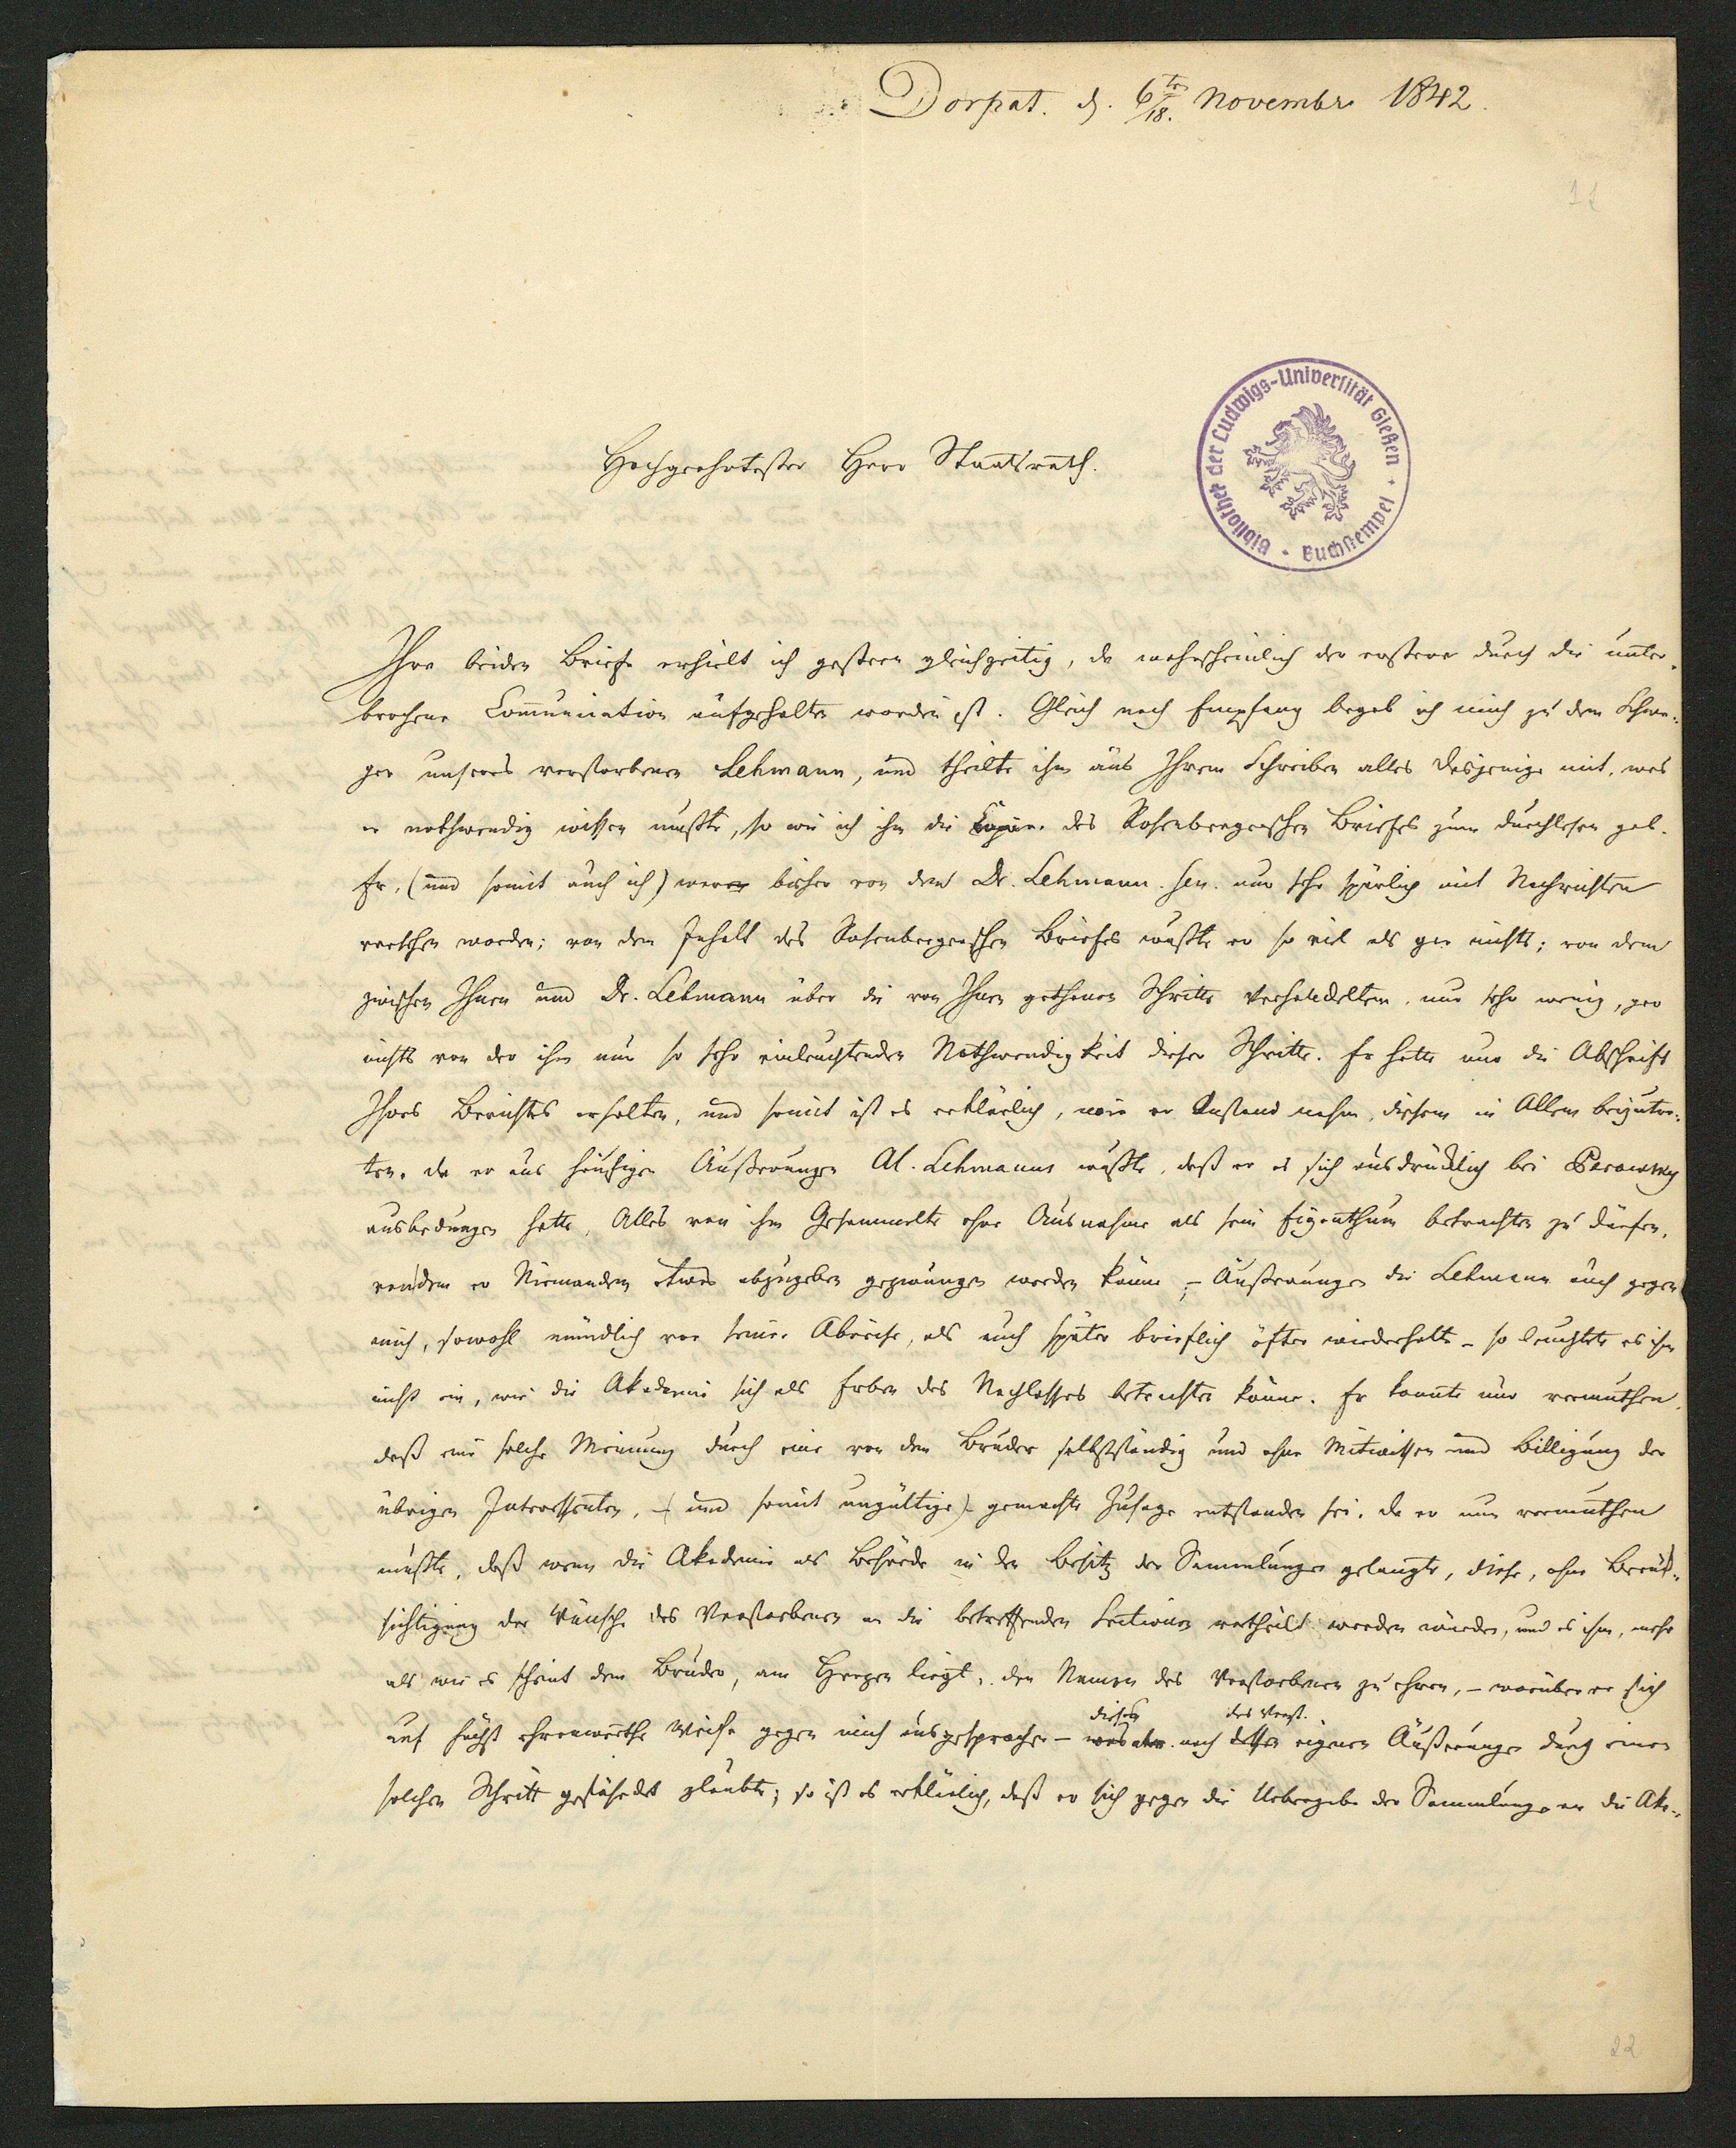 Dorpat. d. 6ten/18. Novembr 1842.
11
Hochgeehrtester Herr Staatsrath.
Bibliothek der Ludwigs-Universität Gießen · Buchstempel ·
Ihre beiden Briefe erhielt ich gestern gleichzeitig, da wahrscheinlich der erstere durch die unter-
brochene Communication aufgehalten worden ist. Gleich nach Empfang begab ich mich zu dem Schwa-
ger unseres verstorbenen Lehmann, und theilte ihm aus Ihrem Schreiben alles dasjenige mit, was
er nothwendig wissen mußte, so wie ich ihm die Copie des Rosenbergerschen Briefes zum durchlesen gab.
Er, (und somit auch ich) war bisher von dem Dr. Lehmann sen. nur sehr spärlich mit Nachrichten
versehen worden; von dem Inhalt des Rosenbergerschen Briefes wußte er so viel als gar nichts; von dem
zwischen Ihnen und Dr. Lehmann über die von Ihnen gethanen Schritte Verhandelten, nur sehr wenig, gar
nichts von der ihm nun so sehr einleuchtenden Nothwendigkeit dieser Schritte. Er hatte nur die Abschrift
Ihres Berichtes erhalten, und somit ist es erklärlich, wie er Anstand nahm, diesem in Allem beizutre-
ten, da er aus häufigen Äußerungen Al. Lehmanns wußte, daß er es sich ausdrücklich bei Perowsky
ausbedungen hatte, Alles von ihm Gesammelte ohne Ausnahme als sein Eigenthum betrachten zu dürfen,
von dem er Niemandem etwas abzugeben gezwungen werden könne, – Äußerungen die Lehmann auch gegen
mich, sowohl mündlich vor seiner Abreise, als auch später brieflich öfter wiederholte – so leuchtete es ihm
nicht ein, wie die Akademie sich als Erben des Nachlasses betrachten könne. Er konnte nur vermuthen,
daß eine solche Meinung durch eine von dem Bruder selbstständig und ohne Mitwissen und Billigung der
übrigen Interessenten, – (und somit ungültige) gemachte Zusage entstanden sei. da er nun vermuthen
mußte, daß wenn die Akademie als Behörde in den Besitz der Sammlungen gelangte, diese, ohne Berück-
sichtigung der Wünsche des Verstorbenen an die betreffenden Sectionen vertheilt werden würden, und es ihm, mehr
als wie es scheint dem Bruder, am Herzen liegt, den Namen des Verstorbenen zu ehren, – worüber er sich
auf höchst ehrenwerthe Weise gegen mich ausgesprochen – was aber nach dessen eigenen Äußerungen durch einen
dieses des Verst.
solchen Schritt gefährdet glaubte; so ist es erklärlich, daß er sich gegen die Uebergabe der Sammlungen an die Aka-
22